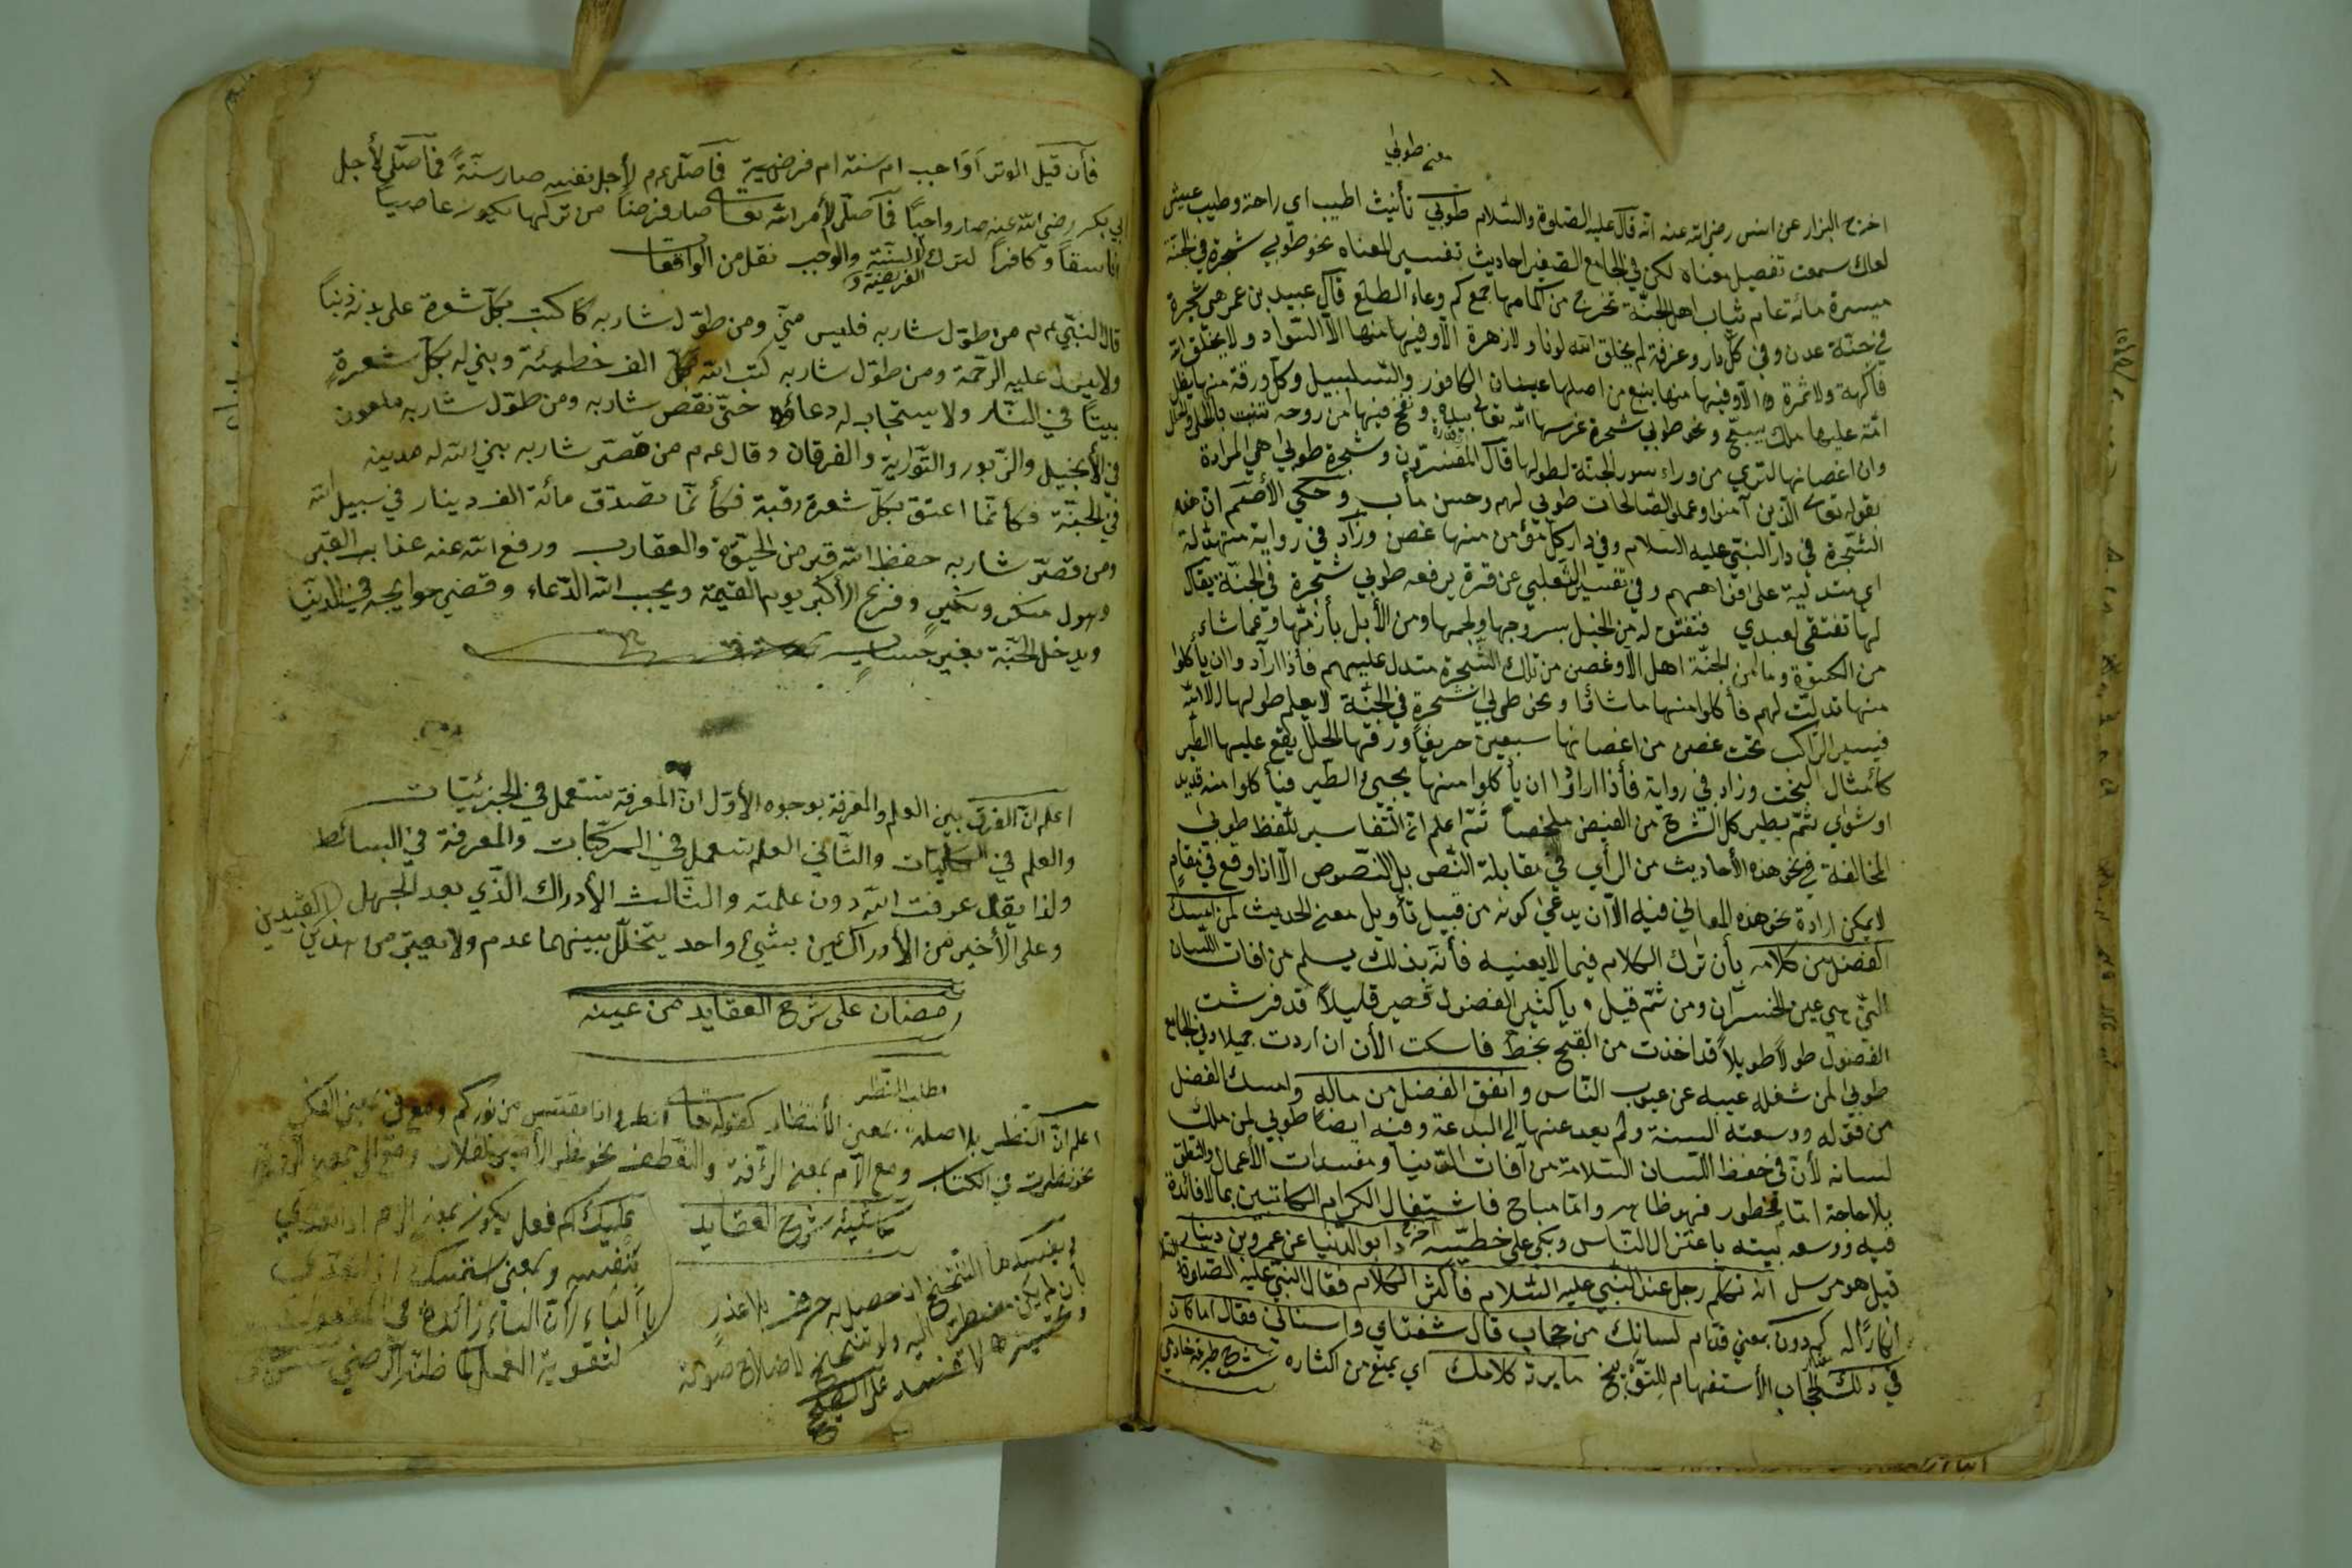 معنى طوبى
اخرج البزار عن انس رضى الله عنه انه قال عليه الصلوة والسلام طوبى تأنيث اطيب اى راحة وطيب عيش
لعلك سمعت تفصيل معناه لكن في الجامع الصغير احاديث تفسير لمعناه نحو طوبى شجرة في الجنة
ميسرة مائة عام ثياب اهل الجنة تخرج من اكمامها جمع كم وعاء الطلع قال عبيد بن عمر هى شجرة
في جنة عدن وفى كل دار وغرفة لم يخلق الله لونا ولا زهرة الا وفيها منها الا السواد ولا يخلق الله
فاكهة ولا ثمرة الا وفيها منها ينبع من اصلها عينان الكافور والسلسبيل وكل ورقة منها يظل
امة عليها ملك يسبح ونحو طوبى شجرة غرسها الله تعالى بيده ونفخ فيها من روحه تنبت بالحلى والحلل
وان اغصانها لترى من وراء سور الجنة لطولها قال المفسرون وشجرة طوبى هى المرادة
بقوله تعالى الذين آمنوا وعملوا الصالحات طوبى لهم وحسن مأب وحكى الأصم ان هذه
الشجرة في دار النبى عليه السلام وفى دار كل مؤمن منها غصن وزاد فى رواية متهدلة
اى متدلية على افواههم وفى تفسير الثعلبى عن قرة يرفعه طوبى شجرة في الجنة يقال
لها تفتقى لعبدى فتفتق له من الخيل بسروجها ولجمها ومن الأبل بأزمتها وعما شاء
من الكسوة وما من الجنة اهل الا وغصن من تلك الشجرة متدل عليهم فأذا ارادوا ان يأكلوا
منها تدلت لهم فأكلوا منها ما شاؤا ونحو طوبى شجرة في الجنة لا يعلم طولها الا الله
فيسير الراكب تحت غصن من اغصانها سبعين خريفا ورقها الحلل يقع عليها الطير
كأمثال البخت وزاد في رواية فأذا ارادوا ان يأكلوا منها يجيئ الطير فيأكلوا منه قديد
او شوى ثم يطير كل الشرح من الفيض ملخصا ثم اعلم ان التفاسير للفظ طوبى
المخالفة في نحو هذه الأحاديث من الرأي في مقابلة النص بل النصوص الا اذا وقع في مقام
لا يمكن ارادة نحو هذه المعانى فيه الا ان يدعى كونه من قبيل تأويل معنى الحديث لمن امسك
الفضل من كلامه بأن ترك الكلام فيما لا يعنيه فأنه بذلك يسلم من افات اللسان
التى هى عين الخسران ومن ثم قيل يا كثير الفضول قصر قليلا قد فرشت
الفضول طولا طويلا قد اخذت من القبح بحظ فاسكت الأن ان اردت جميلا وفى الجامع
طوبى لمن شغله عيبه عن عيوب الناس وانفق الفضل من ماله وامسك الفضل
من قوله ووسعته السنة ولم يعد عنها الى البدعة وفيه ايضا طوبى لمن ملك
لسانه لأن فى حفظ اللسان السلامة من آفات الدنيا ومفسدات الأعمال والنطق
بلا حاجة اما محظور فهو ظاهر واما مباح فاشتغال الكرام الكاتبين بما لا فائدة
فيه ووسعه بيته باعتزال الناس وبكى على خطيئته اخرج ابو الدنيا عن عمرو بن دينار
قيل هو مرسل انه تكلم رجل عند النبى عليه السلام فأكثر الكلام فقال النبى عليه الصلوة
انكارا له كم دون بمعنى قدام لسانك من حجاب قال شفتاى واسنانى فقال اما كان
في ذلك الحجاب الأستفهام للتوبيخ ما يرد كلامك اى يمنع من اكثاره شرح طريقة خادمى
فأن قيل الوتر أواجب ام سنة ام فرضية فأصلى عم لأجل نفسه صار سنة فأصلى لأجل
ابى بكر رضى الله عنه صار واجبا فأصلى لأمر الله تعالى صار فرضا من تركها يكون عاصيا
فاسقا وكافرا لترك السنة والوجب نقل من الواقعات
الفريضة و
قال النبى عم من طول شاربه فليس منى ومن طول شاربه كتب بكل شعرة على بدنه ذنبا
ولا ينزل عليه الرحمة ومن طول شاربه كتب الله بكل الف خطيئة وبنى له بكل شعرة
بيتا في النار ولا يستجاب له دعائه حتى نقص شاربه ومن طول شاربه ملعون
في الأنجيل والزبور والتوراية والفرقان وقال عم من قصر شاربه بنى الله له مدينة
في الجنة فكأنما اعتق بكل شعرة رقبة فكأنما تصدق مائة الف دينار في سبيل الله
ومن قصر شاربه حفظ الله قبر من الحية والعقارب ورفع الله عنه عذاب القبر
وهول منكر ونكير وفزع الأكبر يوم القيمة ويجيب الله الدعاء وقضى حوايجه في الدنيا
ويدخل الجنة بغير حساب
اعلم ان الفرق بين العلم والمعرفة بوجوه الأول ان المعرفة تستعمل في الجزئيات
والعلم في الكليات والثانى العلم يستعمل في المركبات والمعرفة في البسائط
ولذا يقال عرفت الله دون علمته والثالث الأدراك الذى بعد الجهل
وعلى الأخير من الأدراكين بشيئ واحد يتخلل بينهما عدم ولا يعتبر من هذين القيدين
رمضان على شرح العقايد من عينه
مطلب النظر
اعلم ان النظر بلا صلة بمعنى الأنتظار كقوله تعالى انظرونا نقتبس من نوركم ومع فى بمعنى الفكر
نحو نظرت في الكتاب ومع اللام بمعنى الرأفة والتعطف نحو نظر الأمير لفلان ومع الى بمعنى الرؤية
حاشية شرح العقايد
ويفسدها التنحنح ان حصل به حرف بلا عذر
بأن لم يكن مضطرا اليه ولا تنحنح لاصلاح صوته
وتحسينه لا تفسد على الصحيح
عليك اسم فعل يكون بمعنى الزم اذا تعدى
بنفسه وبمعنى استمسك اذا تعدى
بالباء لأن الباء زائدة في المفعول
لتقوية العمل كما ظنه الرضى